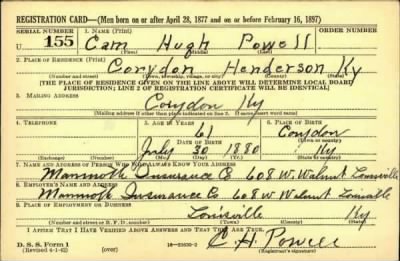 REGISTRATION CARD—(Men born on or after April 28, 1877 and on or before February 16, 1897)
SERIAL NUMBER 1. NAME (Print) ORDER NUMBER
U 155 Cam Hugh Powell
(First) (Middle) (Last)
2. PLACE OF RESIDENCE (Print)
Corydon Henderson Ky
(Number and street) (Town, township, village, or city) (County) (State)
[THE PLACE OF RESIDENCE GIVEN ON THE LINE ABOVE WILL DETERMINE LOCAL BOARD
JURISDICTION; LINE 2 OF REGISTRATION CERTIFICATE WILL BE IDENTICAL]
3. MAILING ADDRESS
Corydon Ky
[Mailing address if other than place indicated on line 2. If same insert word same]
4. TELEPHONE 5. AGE IN YEARS 6. PLACE OF BIRTH
61 Corydon
DATE OF BIRTH (Town or county)
July 30 1880 Ky
(Exchange) (Number) (Mo.) (Day) (Yr.) (State or country)
7. NAME AND ADDRESS OF PERSON WHO WILL ALWAYS KNOW YOUR ADDRESS
Mammoth Insurance Co 608 W. Walnut Louisville
8. EMPLOYER'S NAME AND ADDRESS
Mammoth Insurance Co 608 W Walnut Louisville
9. PLACE OF EMPLOYMENT OR BUSINESS
Louisville Ky
(Number and street or R. F. D. number) (Town) (County) (State)
I AFFIRM THAT I HAVE VERIFIED ABOVE ANSWERS AND THAT THEY ARE TRUE.
C. H. Powell
D. S. S. Form 1
(Revised 4-1-42) (over) (Registrant's signature)